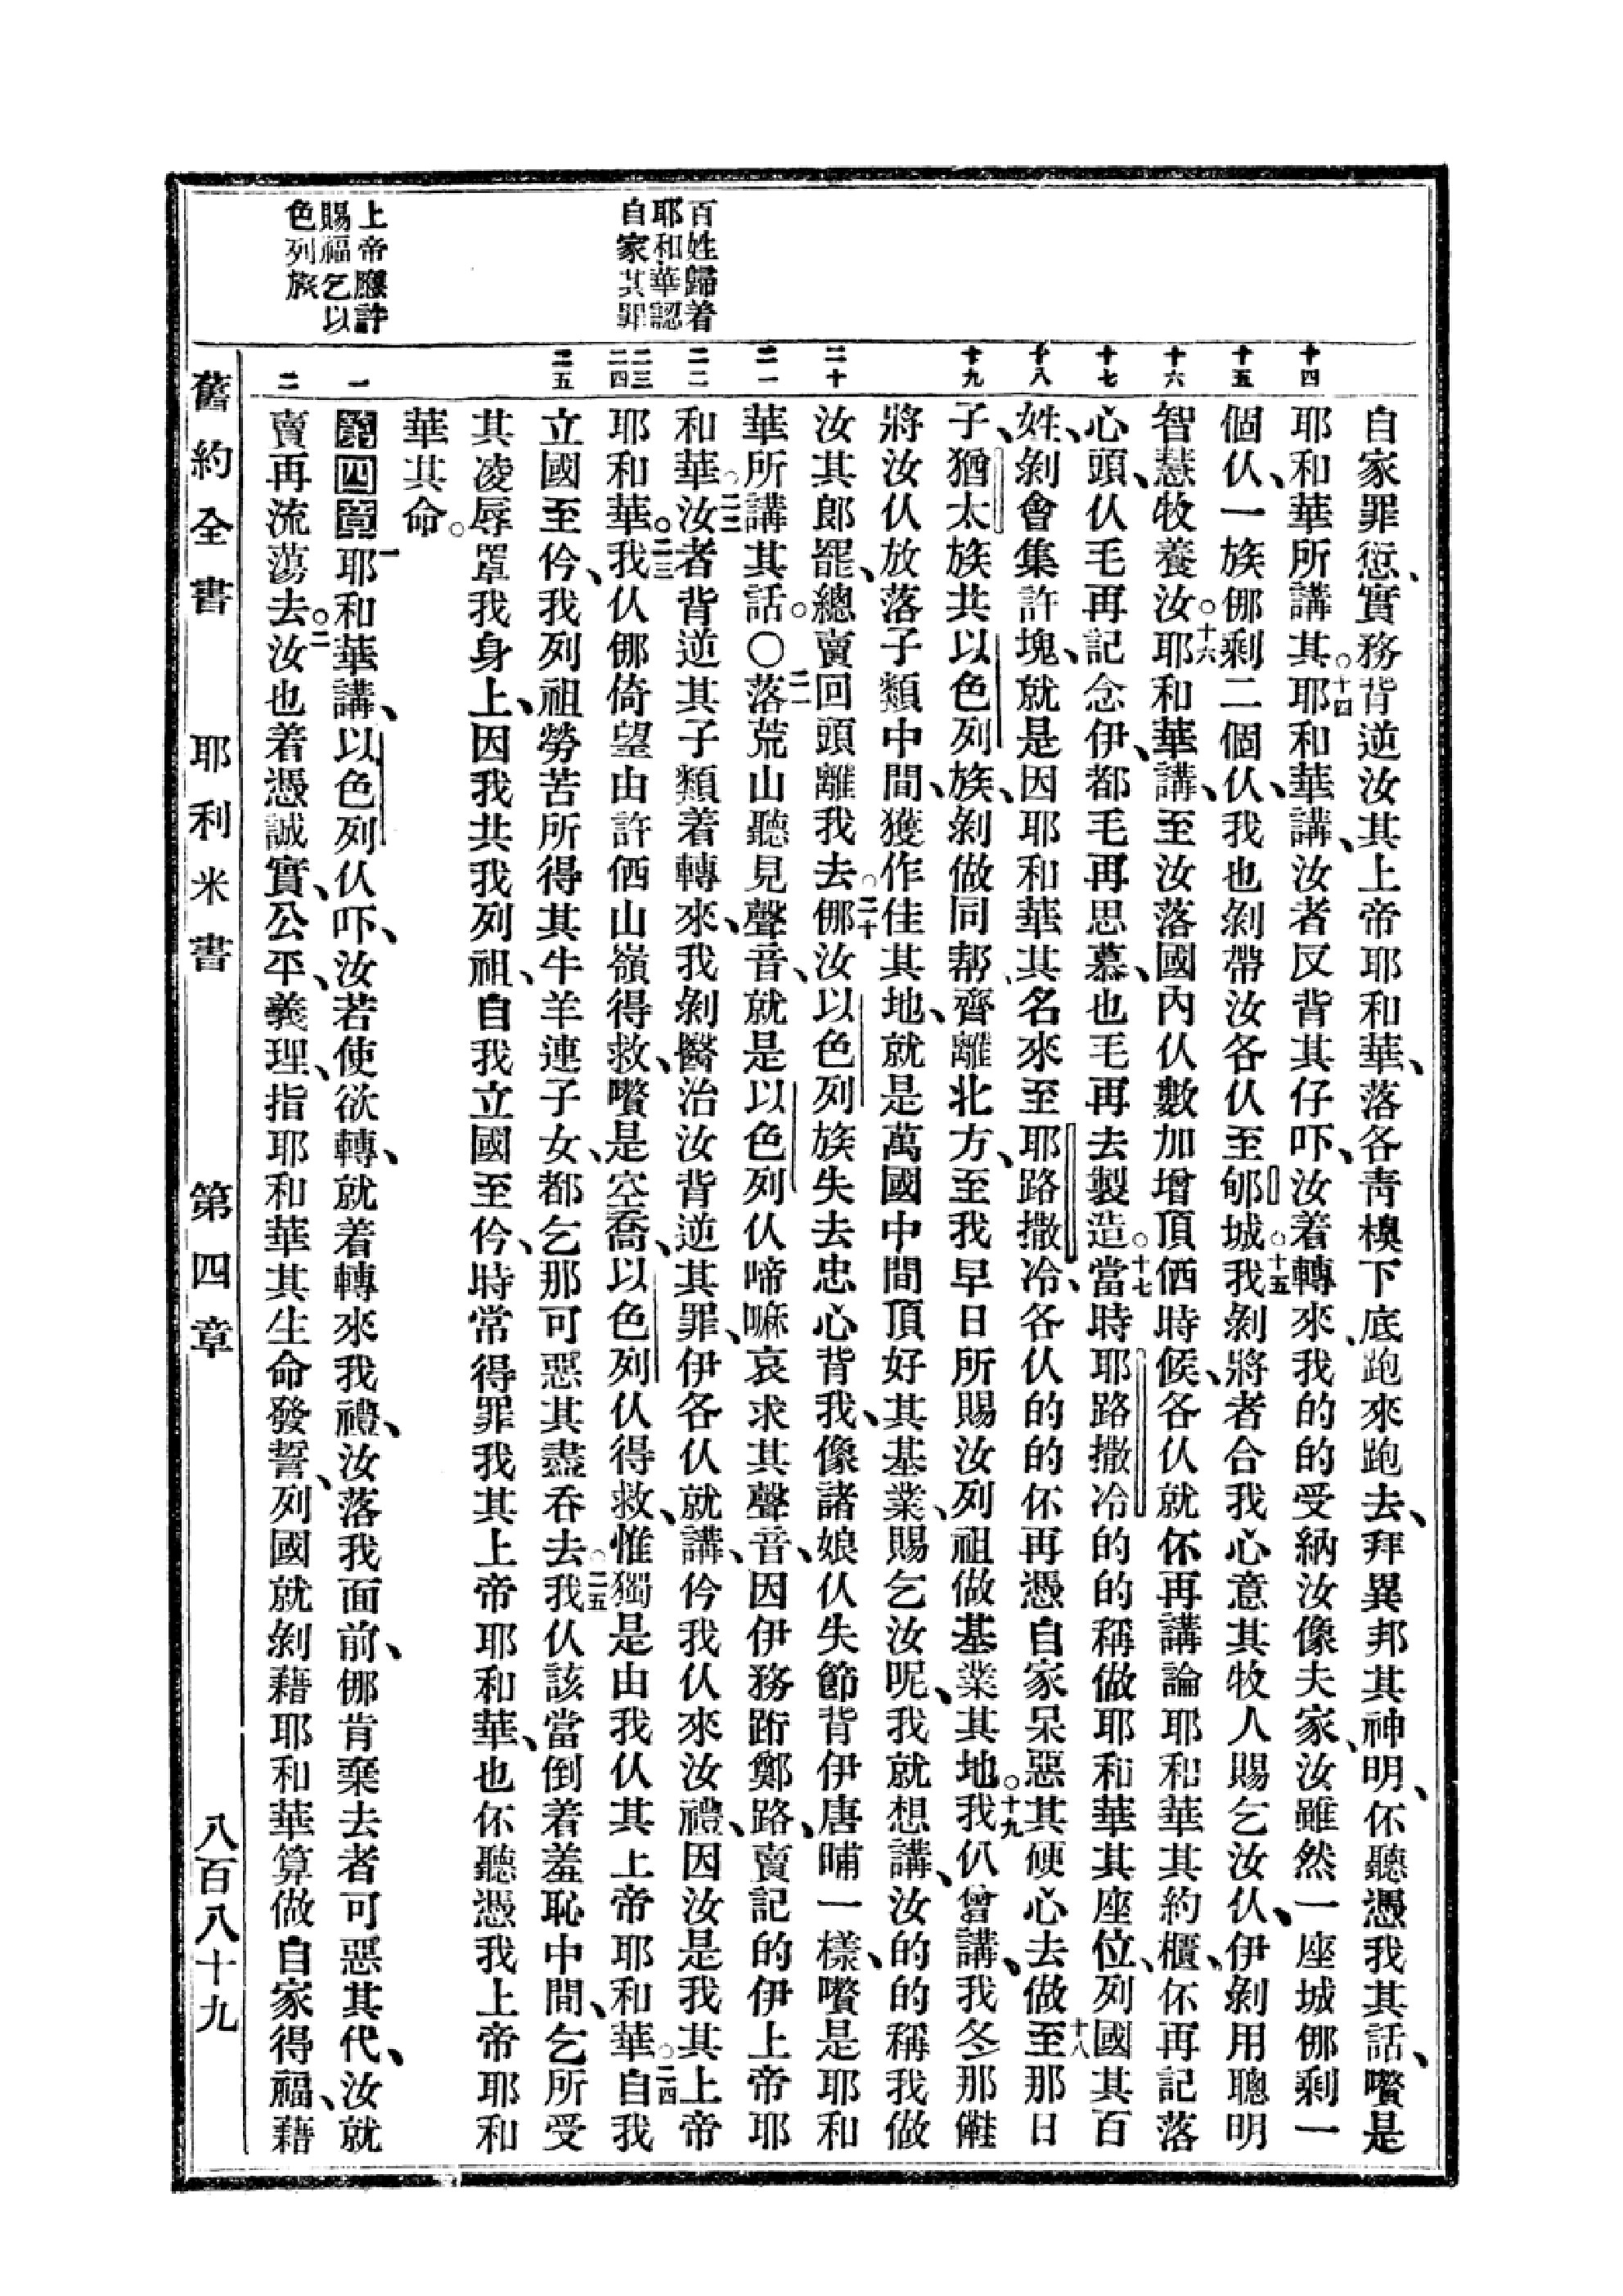 百姓歸着
耶和華認
自家其罪
上帝應許
賜福乞以
色列族
十四
十五
十六
十七
十八
十九
二十
二一
二二
二三
二四
二五
一
二
自家罪愆、實務背逆汝其上帝耶和華、落各靑樉下底、跑來跑去、拜異邦其神明、伓聽憑我其話、嚽是
耶和華所講其。十四耶和華講、汝者反背其仔吓、汝着轉來、我的的受納汝像夫家、汝雖然一座城、㑚剩一
個仈、一族㑚剩二個仈、我也剝帶汝各仈至郇城。十五我剝將者合我心意其牧人賜乞汝仈、伊剝用聰明
智慧牧養汝。十六耶和華講、至汝落國內仈數加增頂価時候、各仈就伓再講論耶和華其約櫃、伓再記落
心頭、仈毛再記念伊、都毛再思慕、也毛再去製造。十七當時耶路撒冷的的稱做耶和華其座位、列國其百
姓、剝會集許塊、就是因耶和華其名來至耶路撒冷、各仈的的伓再憑自家呆惡其硬心去做、十八至那日
子、猶太族共以色列族、剝做同帮、齊離北方、至我早日所賜汝列祖做基業其地。十九我仈曾講、我冬那
將汝仈放落子類中間、獲作佳其地、就是萬國中間頂好其基業、賜乞汝呢、我就想講、汝的的稱我做
汝其郎罷、總賣回頭離我去。二十㑚汝以色列族失去忠心背我、像諸娘仈失節背伊唐晡一樣、嚽是耶和
華所講其話。〇二一落荒山聽見聲音、就是以色列仈啼嘛哀求其聲音、因伊務跡鄭路、賣記的伊上帝耶
和華。二二汝者背逆其子類着轉來、我剝醫治汝背逆其罪、伊各仈就講、仱我仈來汝禮、因汝是我其上帝
耶和華。二三我仈㑚倚望由許価山嶺得救、嚽是空喬、以色列仈得救、惟獨是由我仈其上帝耶和華。二四自我
立國至仱、我列祖勞苦所得其牛羊連子女、都乞那可惡其盡吞去。二五我仈該當倒着羞恥中間、乞所受
其凌辱罩我身上、因我共我列祖、自我立國至仱、時常得罪我其上帝耶和華、也伓聽憑我上帝耶和
華其命。
第四章一耶和華講、以色列仈吓、汝若使欲轉、就着轉來我禮、汝落我面前、㑚肯棄去者可惡其代、汝就
賣再流蕩去。二汝也着憑誠實、公平、義理、指耶和華其生命發誓、列國就剝藉耶和華算做自家得福、藉
舊約全書 耶利米書 第四章 八百八十九